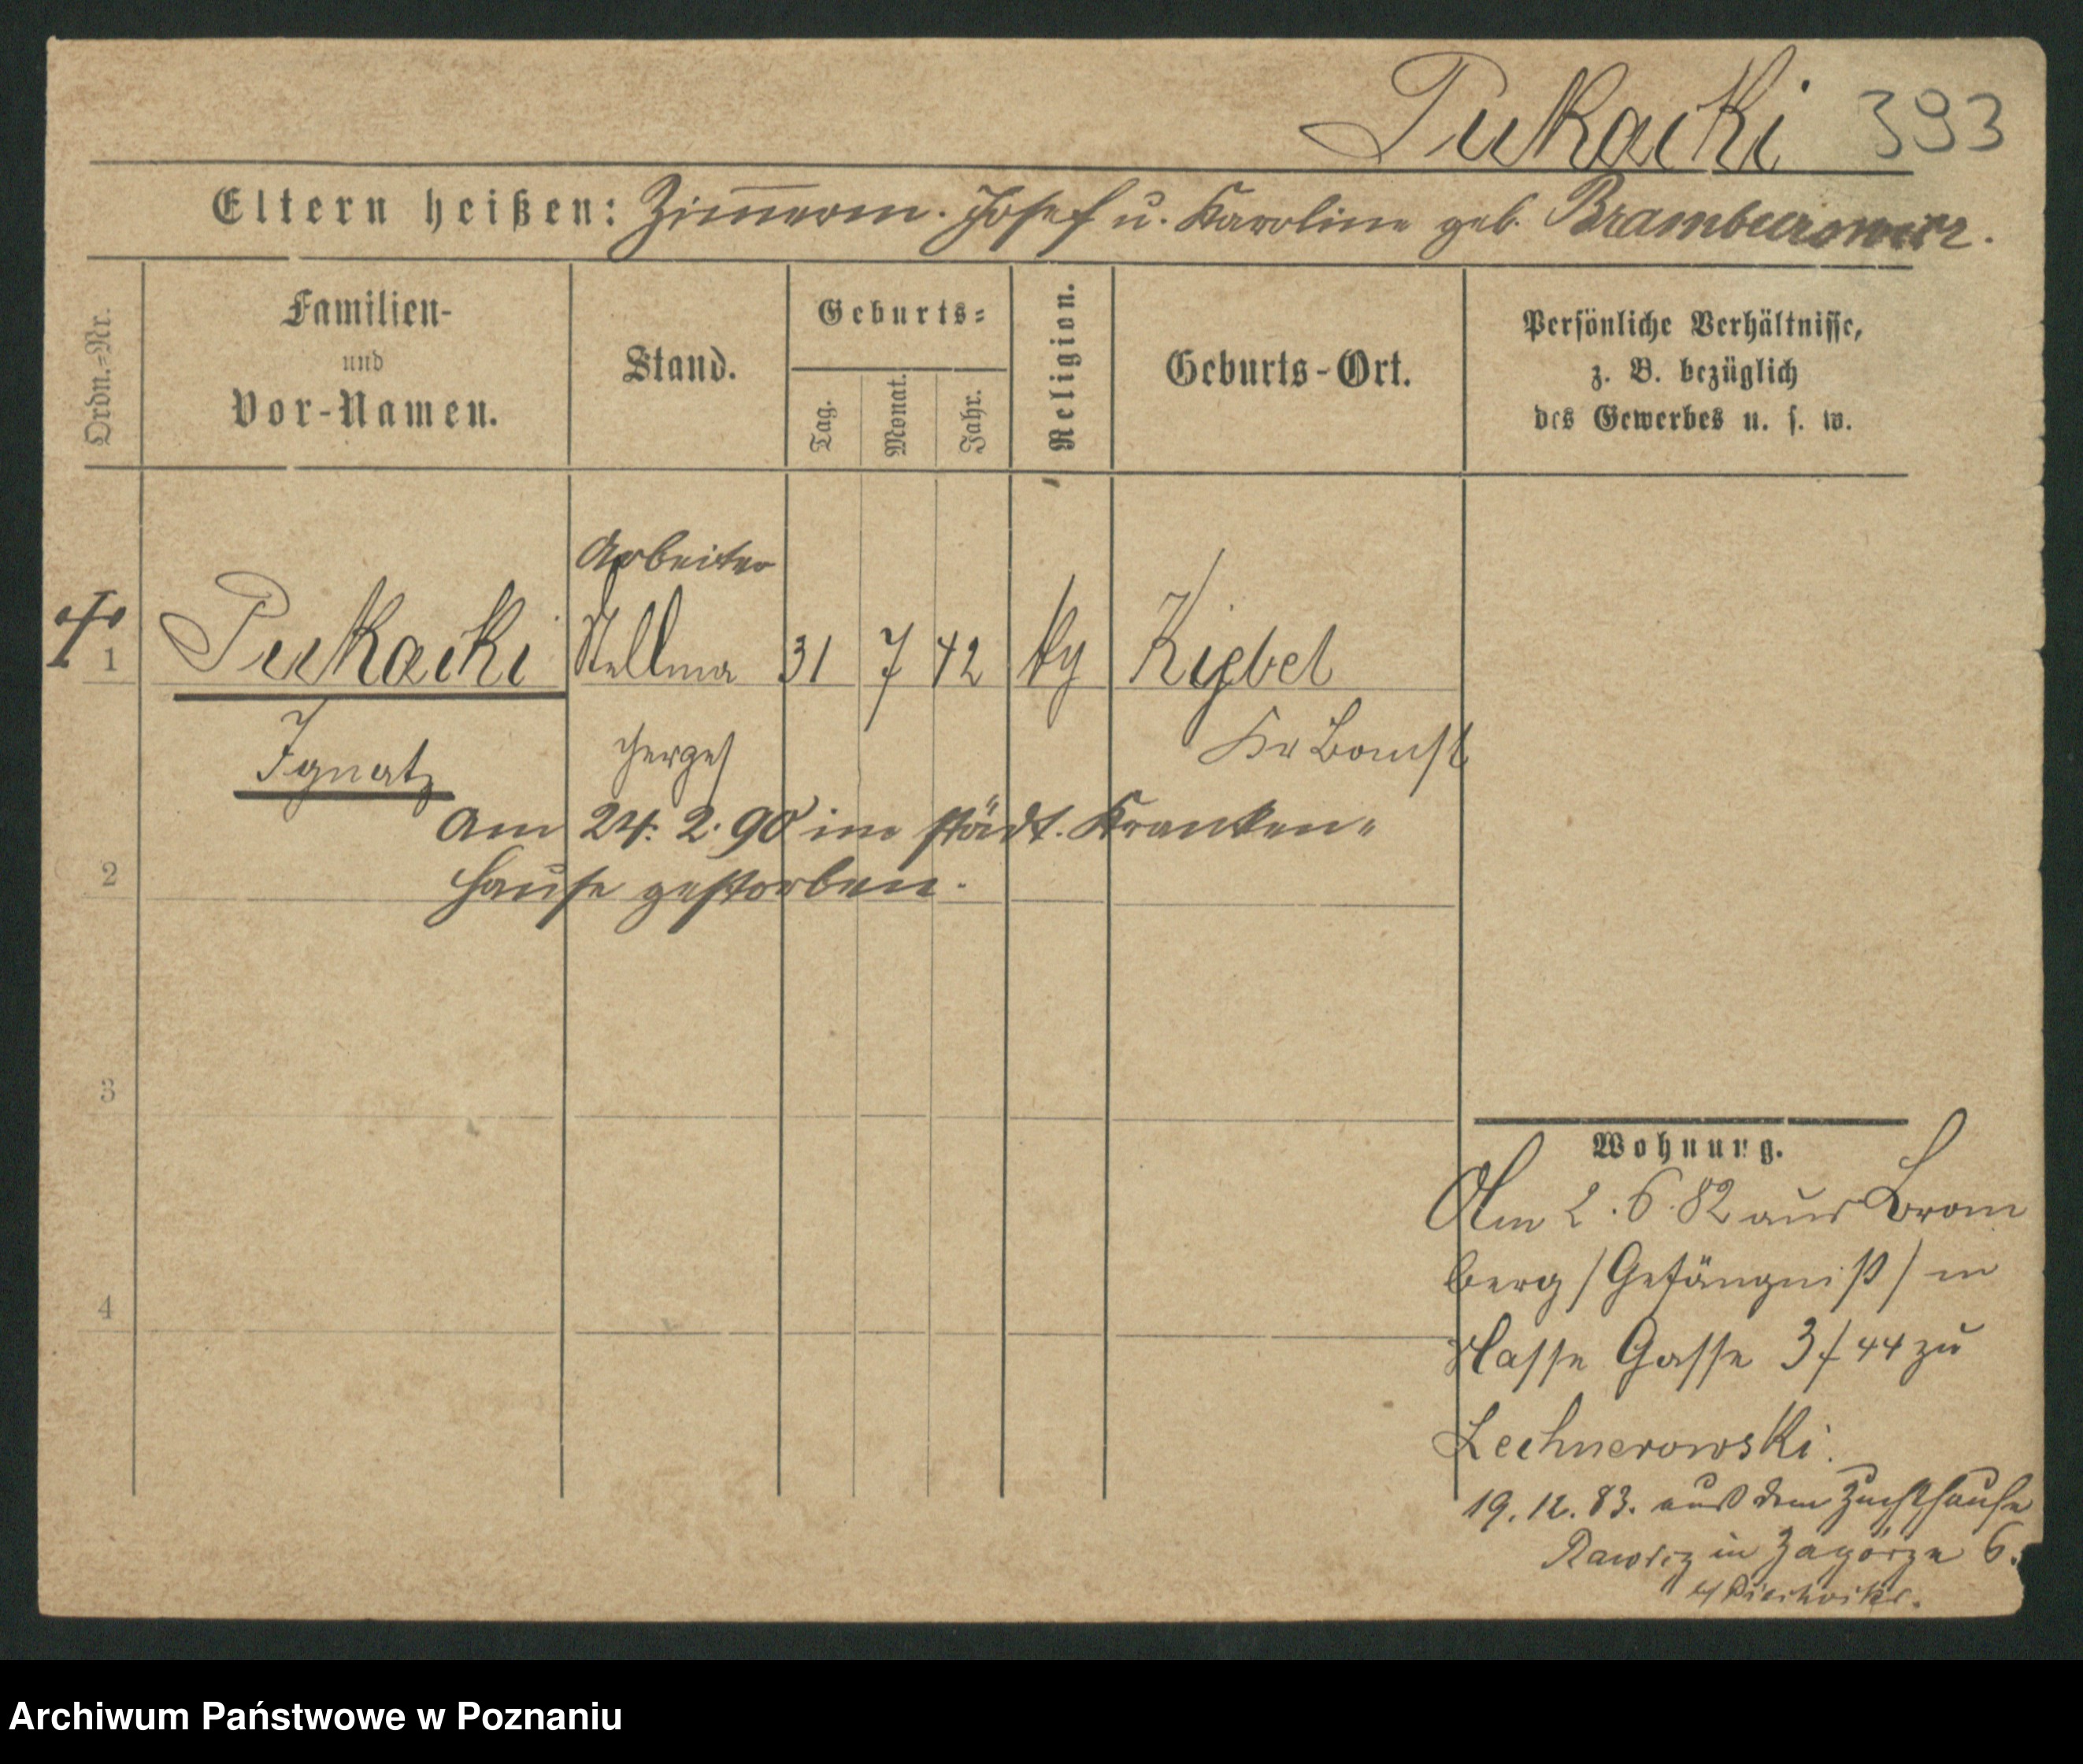 Pukacki 393
Eltern heißen: Zimmerm. Josef u. Karoline geb.
Familien-
und
Vor-Namen.
Ordn.-Nr.
Stand.
Geburts-
Tag.
Monat.
Jahr.
Religion.
Geburts-Ort.
Persönliche Verhältnisse,
z. B. bezüglich
des Gewerbes u. s. w.
Arbeiter
1 Pukacki 31 7 42 Kiebel
Ignatz Kr Bomst
Am 24. 2. 90 im städt. Kranken-
2 hause gestorben.
3
4
Wohnung.
Am 2. 6. 82 aus Brom
berg / Gefängniß / in
Gasse 3 / 44 zu
Lechnerowski.
19. 12. 83. aus dem Zuchthause
Rawicz in Zagórze 6.
Archiwum Państwowe w Poznaniu